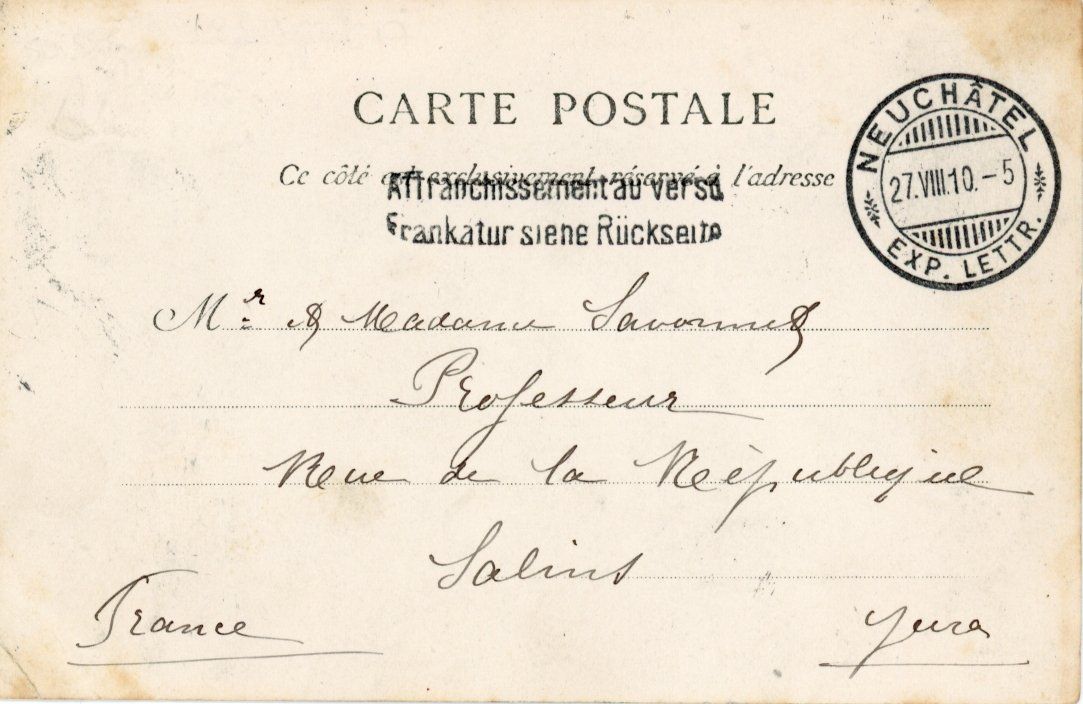 CARTE POSTALE
Ce côté est exclusivement réservé à l'adresse
Affranchissement au verso
Frankatur siehe Rückseite
NEUCHÂTEL
27.VIII.10.-5
EXP. LETTR.
Mr. & Madame Savonnet
Professeur
Rue de la République
Salins
France
Jura